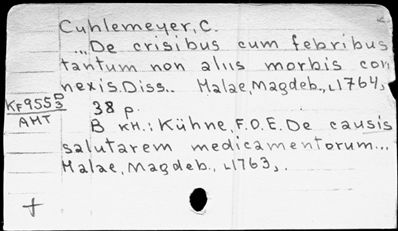 Cuhlemeyer, C.
...De crisibus cum febribus
tantum non aliis morbis con
nexis. Diss.. Halae, Magdeb., 1764,
38 p.
KF 955 D/3
AMT
В кн.: Kühne, F.O.E. De causis
salutarem medicamentorum...
Halae, Magdeb., 1763,.
+